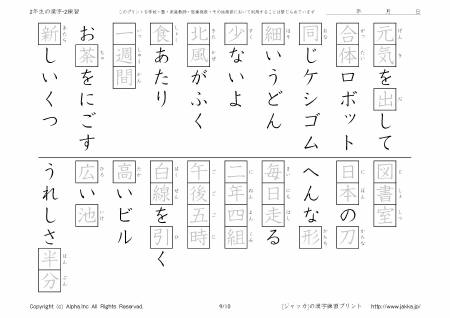 2年生の漢字-2練習
このプリントを学校・塾・家庭教師・医療機関・その他施設において利用することは禁じられています
年 月 日
元気を出して
合体ロボット
同じケシゴム
細いうどん
少ないよ
北風がふく
食あたり
一週間
お茶をにごす
新しいくつ
図書室
日本の刀
へんな形
毎日走る
二年四組
午後五時
白線を引く
高いビル
広い池
うれしさ半分
Copyright (c) Alpha.Inc All Rights Reserved.
9/10
[ジャッカ]の漢字練習プリント
http://www.jakka.jp/